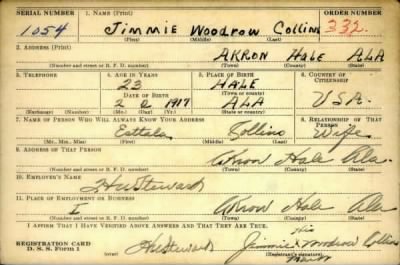 SERIAL NUMBER 1. NAME (Print) ORDER NUMBER
1054 Jimmie Woodrow Collins 332
(First) (Middle) (Last)
2. ADDRESS (Print)
AKRON HALE ALA
(Number and street or R. F. D. number) (Town) (County) (State)
3. TELEPHONE 4. AGE IN YEARS 5. PLACE OF BIRTH 6. COUNTRY OF CITIZENSHIP
23 HALE
DATE OF BIRTH (Town or county)
2 2 1917 ALA USA.
(Exchange) (Number) (Mo.) (Day) (Yr.) (State or country)
7. NAME OF PERSON WHO WILL ALWAYS KNOW YOUR ADDRESS 8. RELATIONSHIP OF THAT PERSON
Collins Wife
(Mr., Mrs., Miss) (First) (Middle) (Last)
9. ADDRESS OF THAT PERSON
Akron Hale Ala.
(Number and street or R. F. D. number) (Town) (County) (State)
10. EMPLOYER'S NAME
Steward
11. PLACE OF EMPLOYMENT OR BUSINESS
Akron Hale Ala
(Number and street or R. F. D. number) (Town) (County) (State)
I AFFIRM THAT I HAVE VERIFIED ABOVE ANSWERS AND THAT THEY ARE TRUE.
his
REGISTRATION CARD Steward Jimmie x Woodrow Collins
D. S. S. Form 1 (Registrant's signature) mark